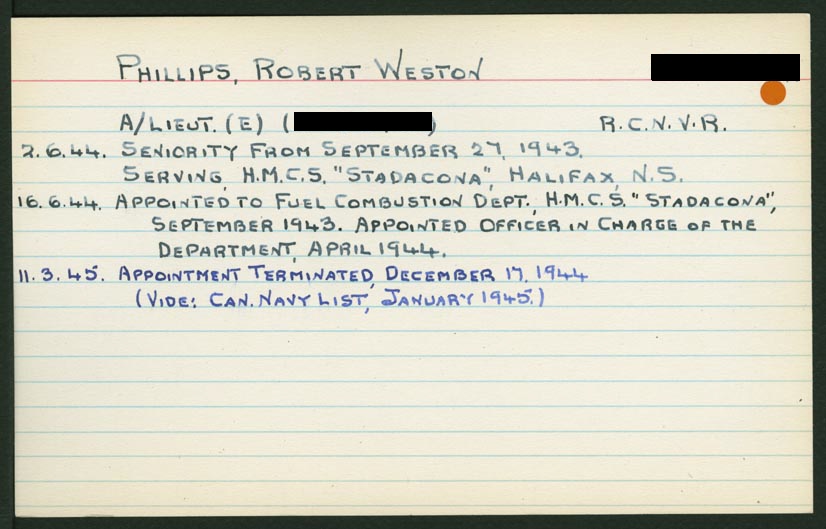 PHILLIPS, ROBERT WESTON
A/LIEUT. (E) ( ) R.C.N.V.R.
2.6.44. SENIORITY FROM SEPTEMBER 27, 1943.
SERVING, H.M.C.S. "STADACONA", HALIFAX, N.S.
16.6.44. APPOINTED TO FUEL COMBUSTION DEPT., H.M.C.S. "STADACONA",
SEPTEMBER 1943. APPOINTED OFFICER IN CHARGE OF THE
DEPARTMENT, APRIL 1944.
11.3.45. APPOINTMENT TERMINATED, DECEMBER 17, 1944
(VIDE: CAN. NAVY LIST, JANUARY 1945.)